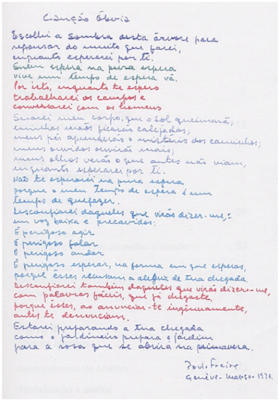 Canção Óbvia
Escolhi a sombra desta árvore para
repousar do muito que farei,
enquanto esperarei por ti.
Quem espera na pura espera
vive um tempo de espera vã.
Por isto, enquanto te espero
trabalharei os campos e
conversarei com os homens
Suarei meu corpo, que o sol queimará;
minhas mãos ficarão calejadas;
meus pés aprenderão o mistério dos caminhos;
meus ouvidos ouvirão mais;
meus olhos verão o que antes não viam,
enquanto esperarei por ti.
Não te esperarei na pura espera
porque o meu tempo de espera é um
tempo de quefazer.
Desconfiarei daqueles que virão dizer-me,:
em voz baixa e precavidos:
É perigoso agir
É perigoso falar
É perigoso andar
É perigoso esperar, na forma em que esperas,
porque esses recusam a alegria de tua chegada.
Desconfiarei também daqueles que virão dizer-me,
com palavras fáceis, que já chegaste,
porque esses, ao anunciar-te ingenuamente,
antes te denunciam.
Estarei preparando a tua chegada
como o jardineiro prepara o jardim
para a rosa que se abrirá na primavera.
Paulo Freire
Genève. Março. 1971.